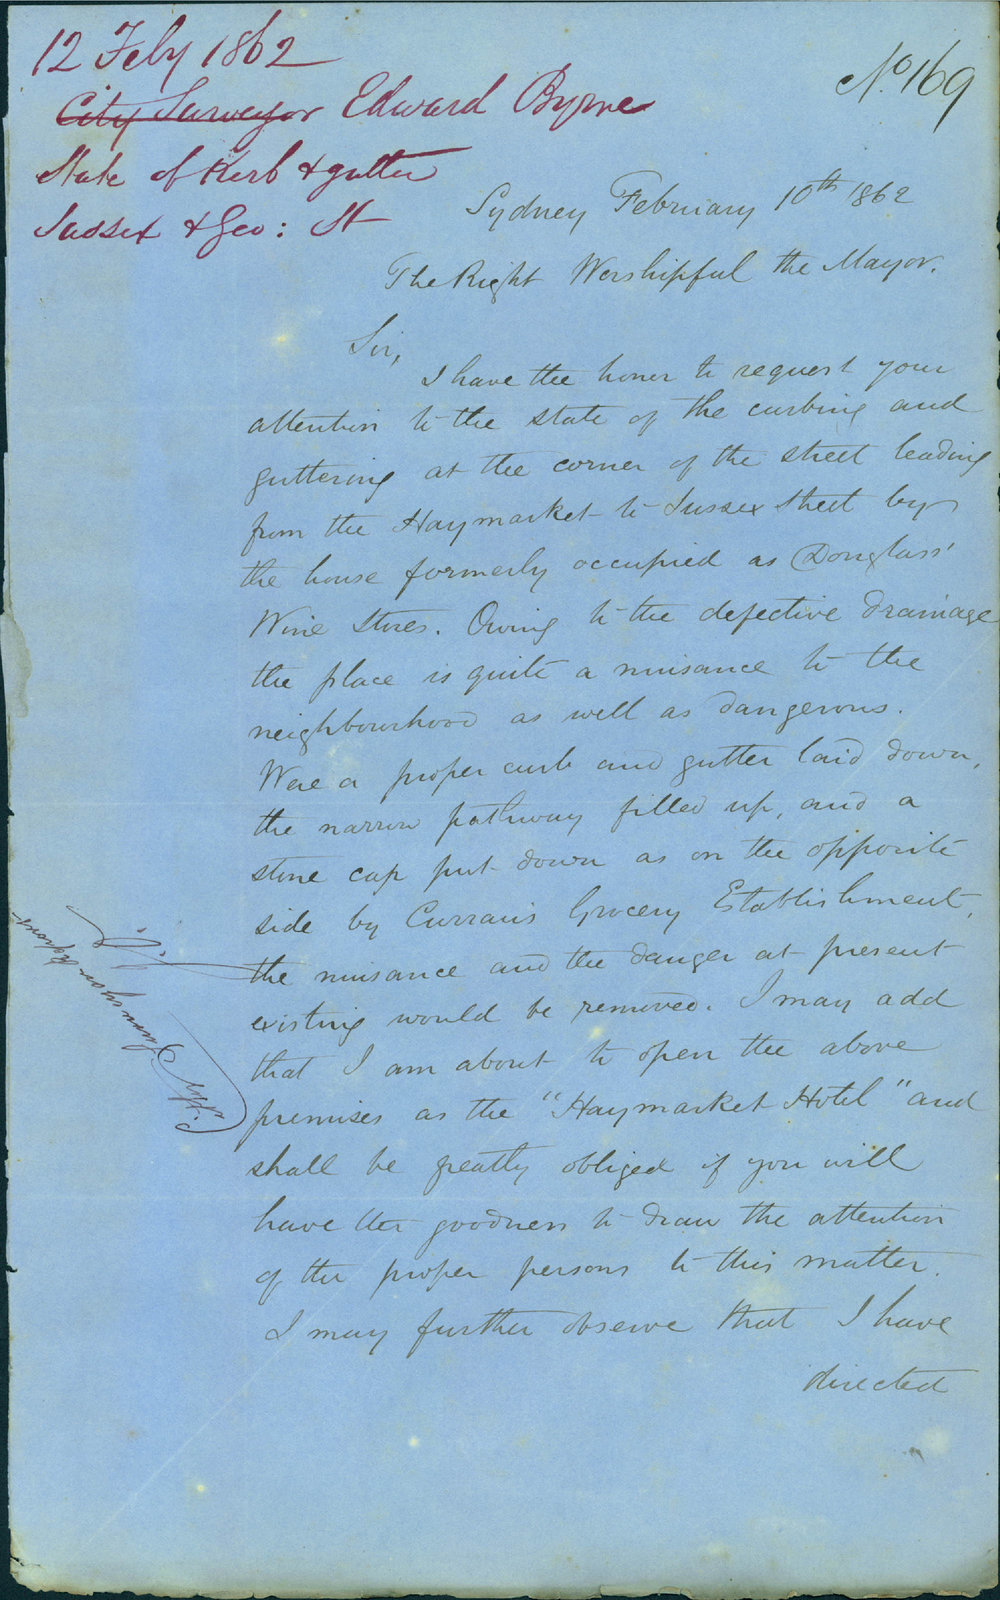 12 Feby 1862
City Surveyor Edward Byrne
State of Kerb & gutter
Sussex & Geo: St
No. 169
Sydney February 10th 1862
The Right Worshipful the Mayor.
Sir,
I have the honor to request your
attention to the state of the curbing and
guttering at the corner of the street leading
from the Haymarket to Sussex Street by
the house formerly occupied as Douglass'
Wine Stores. Owing to the defective drainage
the place is quite a nuisance to the
neighbourhood as well as dangerous.
Were a proper curb and gutter laid down,
the narrow pathway filled up, and a
stone cap put down as on the opposite
side by Curran's Grocery Establishment,
the nuisance and the danger at present
existing would be removed. I may add
that I am about to open the above
premises as the "Haymarket Hotel" and
shall be greatly obliged if you will
have the goodness to draw the attention
of the proper persons to this matter.
I may further observe that I have
directed
City Surveyor